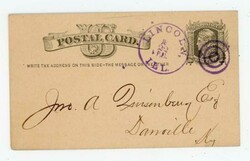 POSTAL CARD.
WRITE THE ADDRESS ON THIS SIDE - THE MESSAGE ON THE
LINCOLN,
Jno. A. Quisenberry Esq
Danville
Ky